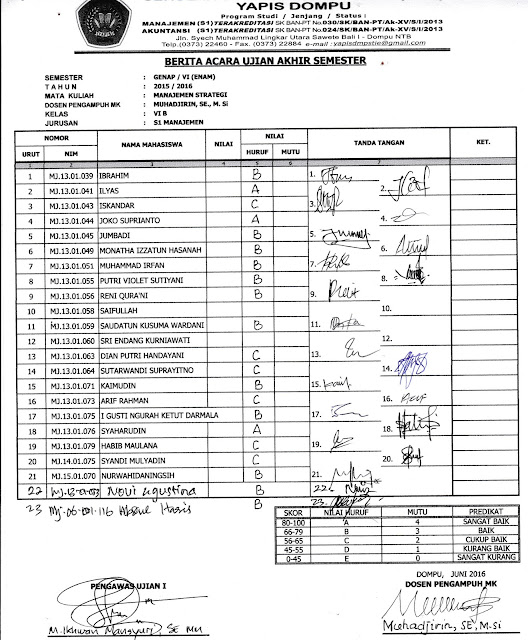 YAPIS DOMPU
Program Studi / Jenjang / Status :
MANAJEMEN (S1) TERAKREDITASI SK BAN-PT No.036/SK/BAN-PT/Ak-XV/S/I/2013
AKUNTANSI (S1) TERAKREDITASI SK BAN-PT No.024/SK/BAN-PT/Ak-XV/S/I/2013
Jln. Syech Muhammad Lingkar Utara Sawete Bali I - Dompu NTB
Telp.(0373) 22460 - Fax. (0373) 22884 e-mail :yapisdmpstie@gmail.com
BERITA ACARA UJIAN AKHIR SEMESTER
SEMESTER : GENAP / VI (ENAM)
TAHUN : 2015 / 2016
MATA KULIAH : MANAJEMEN STRATEGI
DOSEN PENGAMPUH MK : MUHADJIRIN, SE., M. Si
KELAS : VI B
JURUSAN : S1 MANAJEMEN
NOMOR NAMA MAHASISWA NILAI NILAI TANDA TANGAN KET.
URUT NIM HURUF MUTU
1 2 3 4 5 6 7
1 MJ.13.01.039 IBRAHIM B 1.
2 MJ.13.01.041 ILYAS A 2.
3 MJ.13.01.043 ISKANDAR C 3.
4 MJ.13.01.044 JOKO SUPRIANTO A 4.
5 MJ.13.01.045 JUMBADI B 5.
6 MJ.13.01.049 MONATHA IZZATUN HASANAH B 6.
7 MJ.13.01.051 MUHAMMAD IRFAN B 7.
8 MJ.13.01.055 PUTRI VIOLET SUTIYANI B 8.
9 MJ.13.01.056 RENI QURA'NI B 9.
10 MJ.13.01.058 SAIFULLAH 10.
11 MJ.13.01.059 SAUDATUN KUSUMA WARDANI B 11.
12 MJ.13.01.060 SRI ENDANG KURNIAWATI 12.
13 MJ.13.01.063 DIAN PUTRI HANDAYANI C 13.
14 MJ.13.01.064 SUTARWANDI SUPRAYITNO C 14.
15 MJ.13.01.071 KAIMUDIN B 15.
16 MJ.13.01.073 ARIF RAHMAN C 16.
17 MJ.13.01.075 I GUSTI NGURAH KETUT DARMALA B 17.
18 MJ.13.01.076 SYAHARUDIN A 18.
19 MJ.13.01.079 HABIB MAULANA C 19.
20 MJ.14.01.075 SYANDI MULYADIN C 20.
21 MJ.15.01.070 NURWAHIDANINGSIH B 21.
22 Novi Agustina B 22.
23 B 23.
SKOR NILAI HURUF MUTU PREDIKAT
80-100 A 4 SANGAT BAIK
66-79 B 3 BAIK
56-65 C 2 CUKUP BAIK
45-55 D 1 KURANG BAIK
0-45 E 0 SANGAT KURANG
DOMPU, JUNI 2016
PENGAWAS UJIAN I DOSEN PENGAMPUH MK
Muhadjirin, SE, M.Si